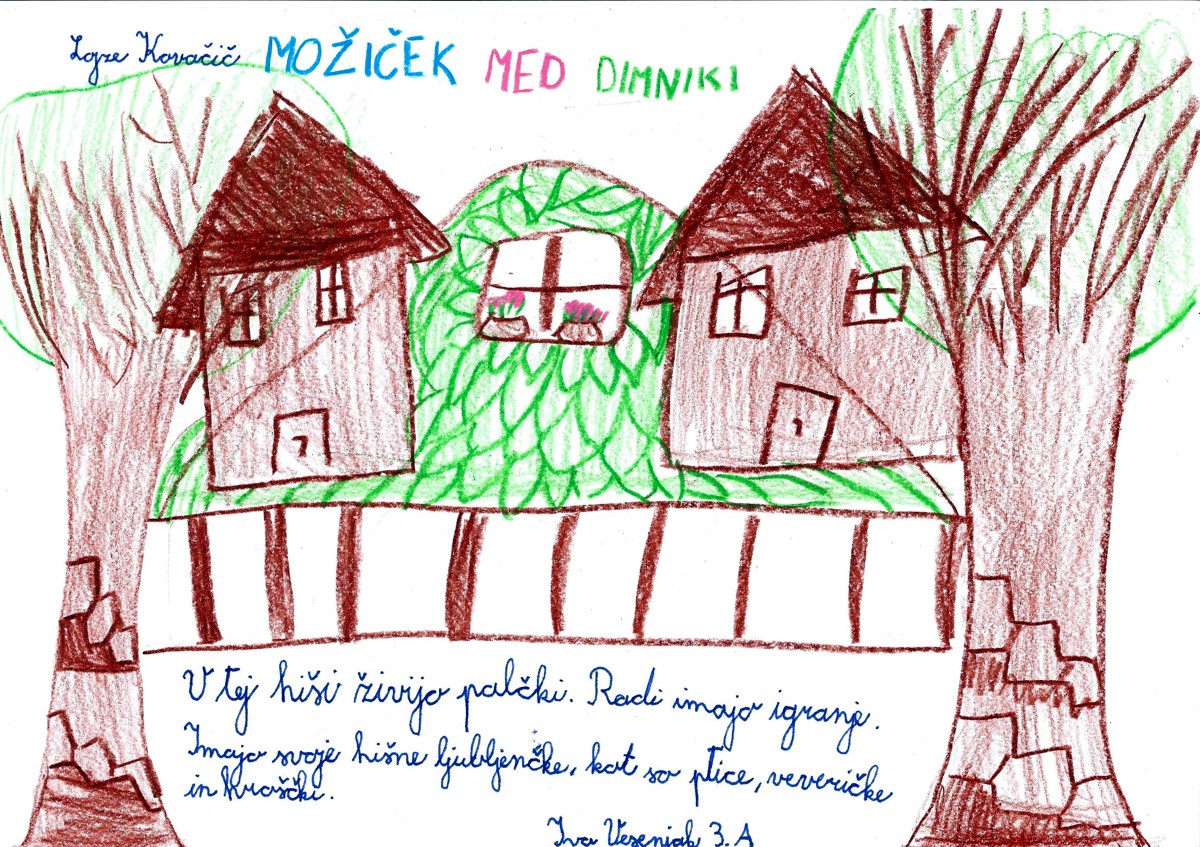 Lojze Kovačič MOŽIČEK MED DIMNIKI
7
1
V tej hiši živijo palčki. Radi imajo igranje.
Imajo svoje hišne ljubljenčke, kot so ptice, veveričke
in hroščki.
Iva Vesenjak 3. A